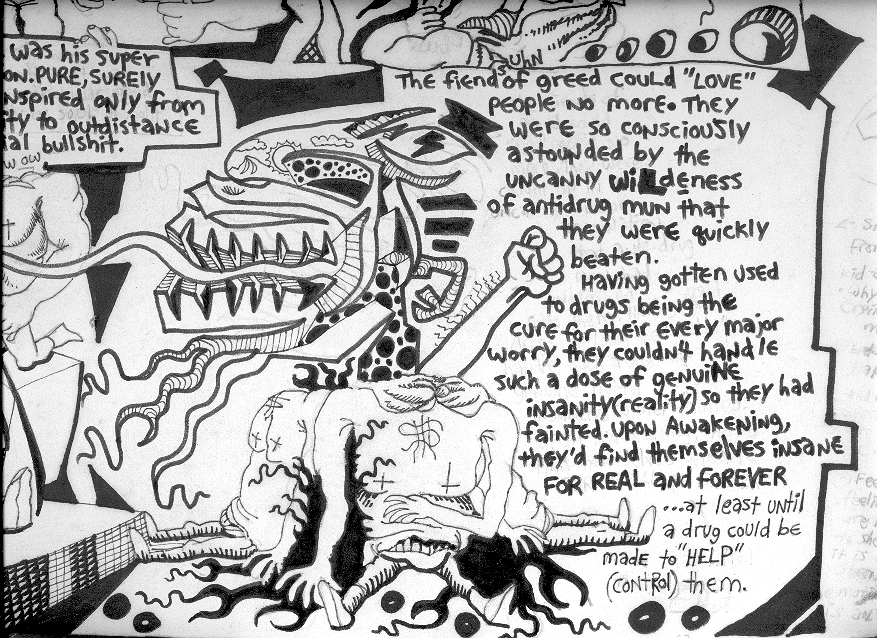 was his super
ON. PURE, SURELY
nspired only from
ty to outdistance
ial bullshit.
W OW
SUHN
The fiends of greed could "LOVE"
people no more. They
were so consciously
astounded by the
uncanny wilderness
of antidrug mun that
they were quickly
beaten.
Having gotten used
to drugs being the
cure for their every major
worry, they couldn't handle
such a dose of genuiNe
insanity(reality) so they had
fainted. upon Awakening,
they'd find themselves insane
FOR REAL and FOREVER
...at least until
a drug could be
made to "HELP"
(CONTROL) them.